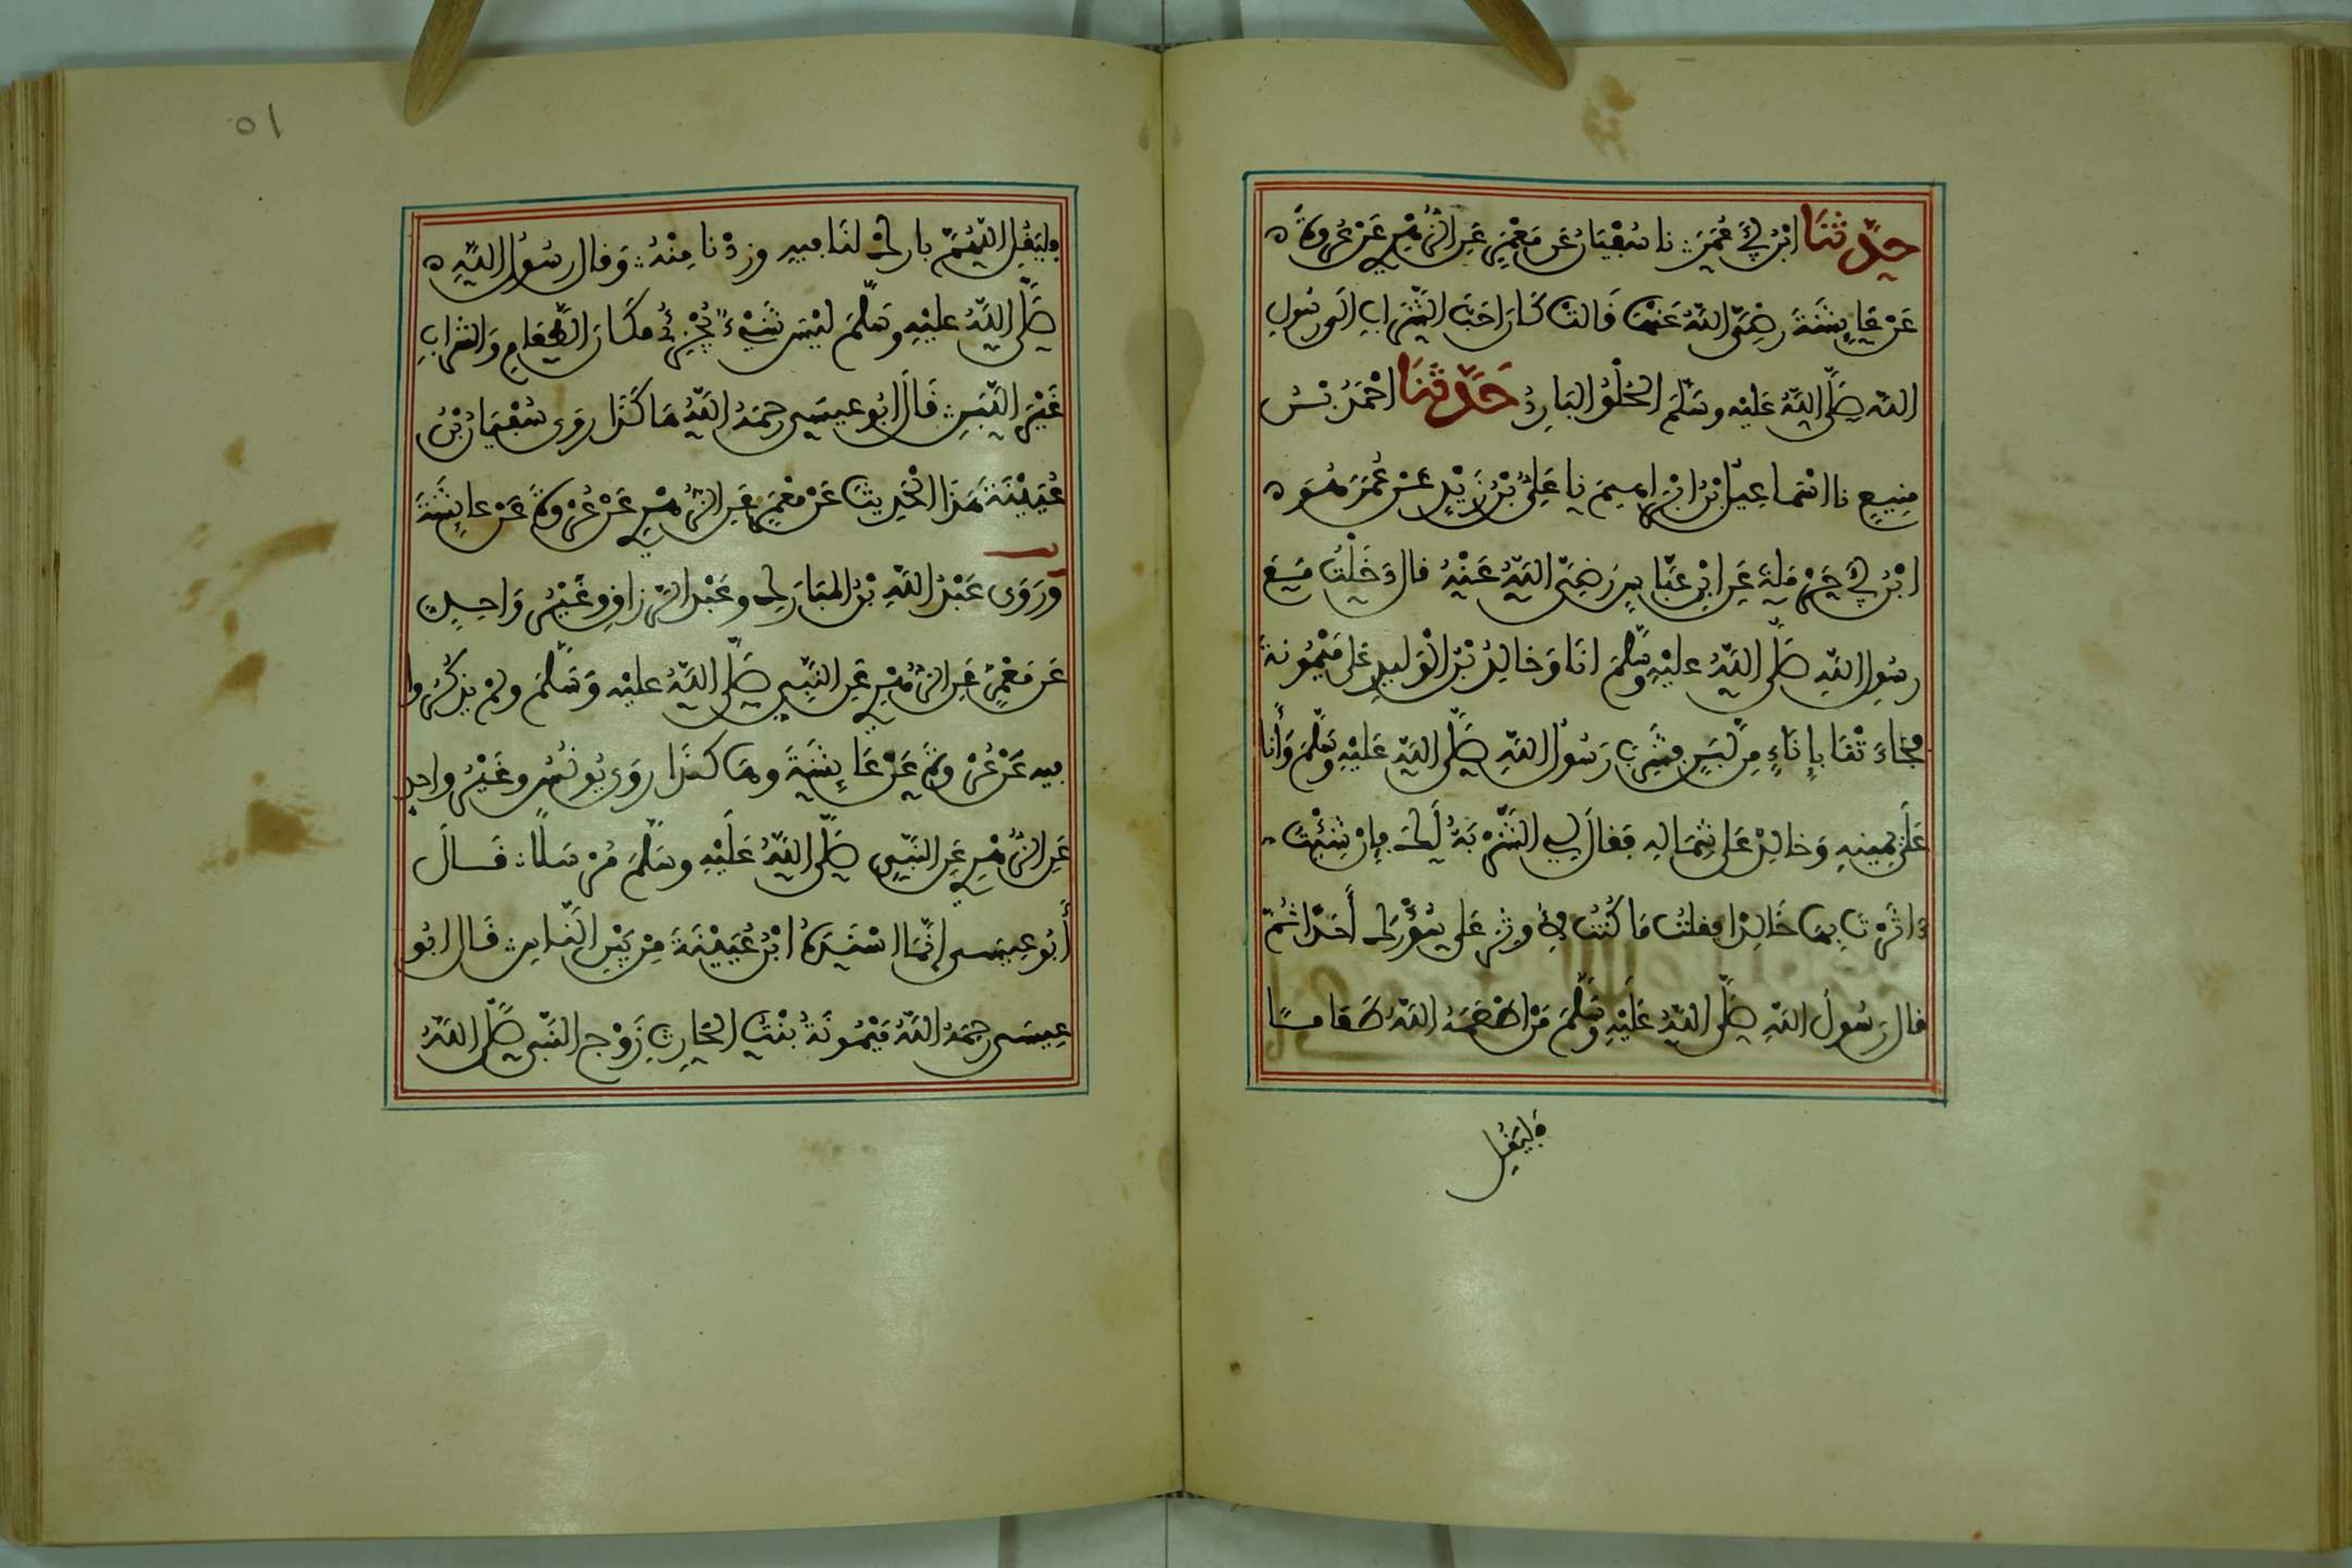 حدَّثَنَا ابْنُ أَبِي عُمَرَ نا سُفْيَانُ عَن مَعْمَرٍ عَنِ الزُّهْرِيِّ عَنْ عُرْوَةَ
عَنْ عَائِشَةَ رَضِيَ اللَّهُ عَنْهَا قَالَتْ كَانَ أَحَبَّ الشَّرَابِ إلَى رَسُولِ
اللَّهِ صَلَّى اللَّهُ عَلَيْهِ وسَلَّمَ الْحُلْوُ الْبَارِدُ حَدَّثَنَا أحْمَدُ بْنُ
مَنِيعٍ نا اسْمَاعِيلُ بْنُ ابْرَاهِيمَ نا عَلِيُّ بْنُ زَيْدٍ عَنْ عُمَرَ هُوَ
ابْنُ أَبِي حَرْمَلَةَ عَنِ ابْنِ عَبَّاسٍ رَضِيَ اللَّهُ عَنْهُ قال دَخَلْتُ مَعَ
رسُولِ اللَّهِ صَلَّى اللَّهُ عَلَيْهِ وسَلَّمَ انَا وَخالِدُ بْنُ الْوَلِيدِ عَلَى مَيْمُونَةَ
فَجَاءَتْنَا بِإِنَاءٍ مِن لَّبَنٍ فَشَرِبَ رَسُولُ اللَّهِ صَلَّى اللَّهُ عَلَيْهِ وسَلَّمَ وَأَنا
عَلَى يَمِينِهِ وَخالِدٌ عَلَى شِمَالِهِ فَقالَ لِي الشَّرْبَةُ لَكَ فإِنْ شِئْتَ
ءَاثَرْتَ بِهَا خَالِدًا فقلتُ مَا كُنْتُ لِأُوثِرَ عَلَى سُؤْرِكَ أَحَدًا ثُمَّ
قال رَسُولُ اللَّهِ صَلَّى اللَّهُ عَلَيْهِ وسَلَّمَ مَنْ أَطْعَمَهُ اللَّهُ طَعَامًا
فليَقُل
٥١
فليَقُلِ اللَّهُمَّ بارِكْ لنَا فيهِ وزِدْنا مِنْهُ وَقال رسُولُ اللَّهِ
صَلَّى اللَّهُ عليْهِ وسَلَّمَ لَيْسَ شَيْءٌ يُجْزِئُ مَكَانَ الطَّعَامِ وَالشرابِ
غَيْرَ اللَّبَنِ قَالَ ابُو عِيسَى رحِمَهُ اللَّهُ هَاكَذَا رَوَى سُفْيَانُ بْنُ
عُيَيْنَةَ هَذَا الْحَدِيثَ عَنْ مَعْمَرٍ عَنِ الزُّهْرِيِّ عَنْ عُرْوَةَ عَنْ عائِشَةَ
وَرَوَى عَبْدُ اللَّهِ بْنُ المبَارَكِ وعَبْدُ الرَّزاقِ وغَيْرُ وَاحِدٍ
عَن مَعْمَرٍ عَنِ الزُّهْرِيِّ عَنِ النَّبِيِّ صَلَّى اللَّهُ عليْهِ وَسَلَّمَ ولَمْ يَذْكُرُوا
فيهِ عَنْ عُرْوَةَ عَنْ عَائِشَةَ وهَاكَذَا رَوَى يُونُسُ وغَيْرُ واحِدٍ
عَنِ الزُّهْرِيِّ عَنِ النَّبِيِّ صَلَّى اللَّهُ عَلَيْهِ وسَلَّمَ مُرْسَلًا قَالَ
أَبُو عِيسَى إنَّمَا اسْنَدَهُ ابْنُ عُيَيْنَةَ مِنْ بَيْنِ النَّاسِ قَالَ ابُو
عِيسَى رحِمَهُ اللَّهُ مَيْمُونَةُ بنْتُ الحَارِثِ زَوْجُ النَّبِي صَلَّى اللَّهُ